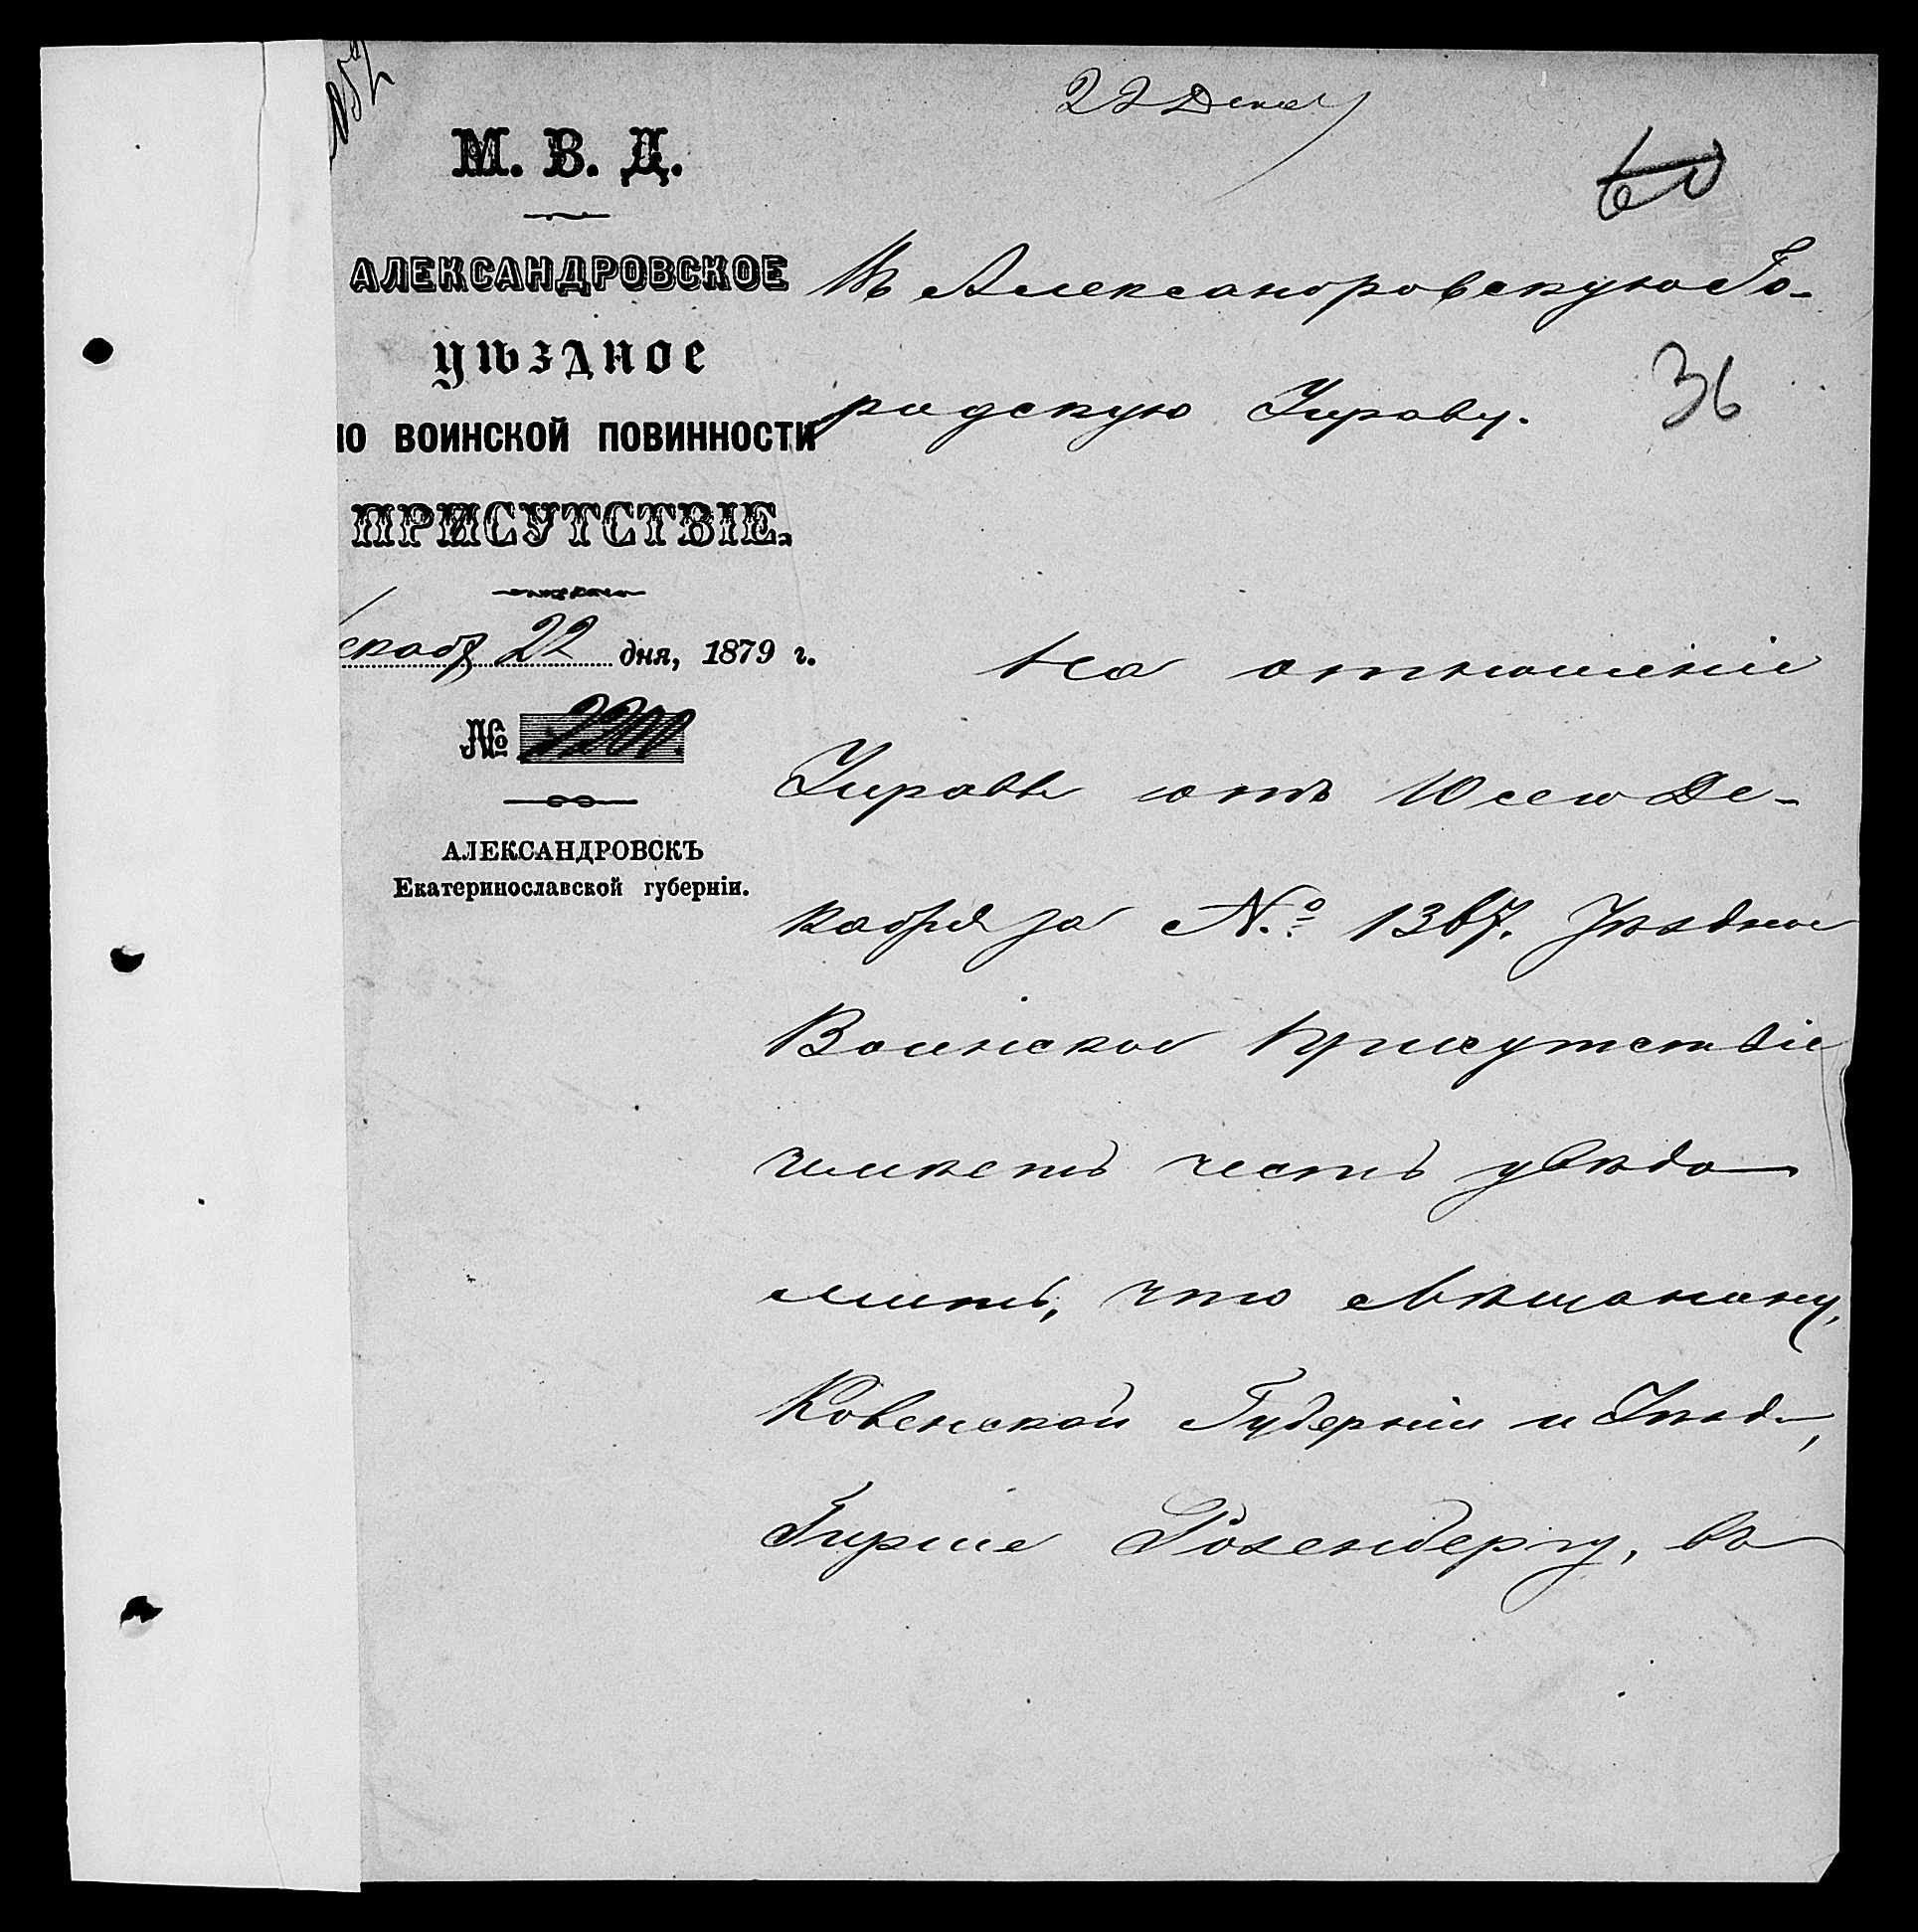 22 Декаб
60
М. В. Д.
АЛЕКСАНДРОВСКОЕ
УѢЗДНОЕ
ПО ВОИНСКОЙ ПОВИННОСТИ
ПРИСУТСТВІЕ.
екабр 22 дня, 1879 г.
№ 2200.
АЛЕКСАНДРОВСКЪ
Екатеринославской губерніи.
Въ Александровскую Го-
родскую Управу.
36
На отношеніе
Управы отъ 10 сего Де-
кабря за №. 1367. Уѣздное
Воинское Присутствіе
имѣетъ честь увѣдо
мить, что мѣщанину,
Ковенской Губерніи и Уѣзда,
Гирше Розенбергу, во